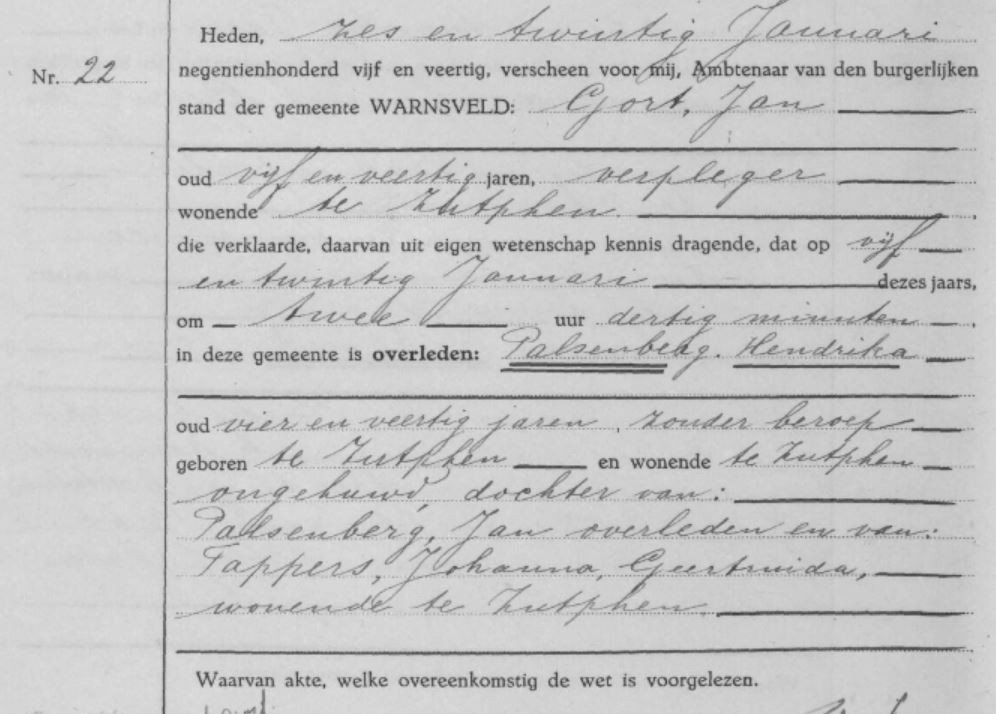 Heden, zes en twintig Januari
Nr. 22 negentienhonderd vijf en veertig, verscheen voor mij, Ambtenaar van den burgerlijken
stand der gemeente WARNSVELD: Gort, Jan
oud vijf en veertig jaren, verpleger
wonende te Zutphen.
die verklaarde, daarvan uit eigen wetenschap kennis dragende, dat op vijf
en twintig Januari dezes jaars,
om twee uur dertig minuten,
in deze gemeente is overleden: Palsenberg. Hendrika
oud vier en veertig jaren, zonder beroep
geboren te Zutphen en wonende te Zutphen
ongehuwd, dochter van:
Palsenberg, Jan overleden en van:
Tappers, Johanna, Geertruida,
wonende te Zutphen.
Waarvan akte, welke overeenkomstig de wet is voorgelezen.